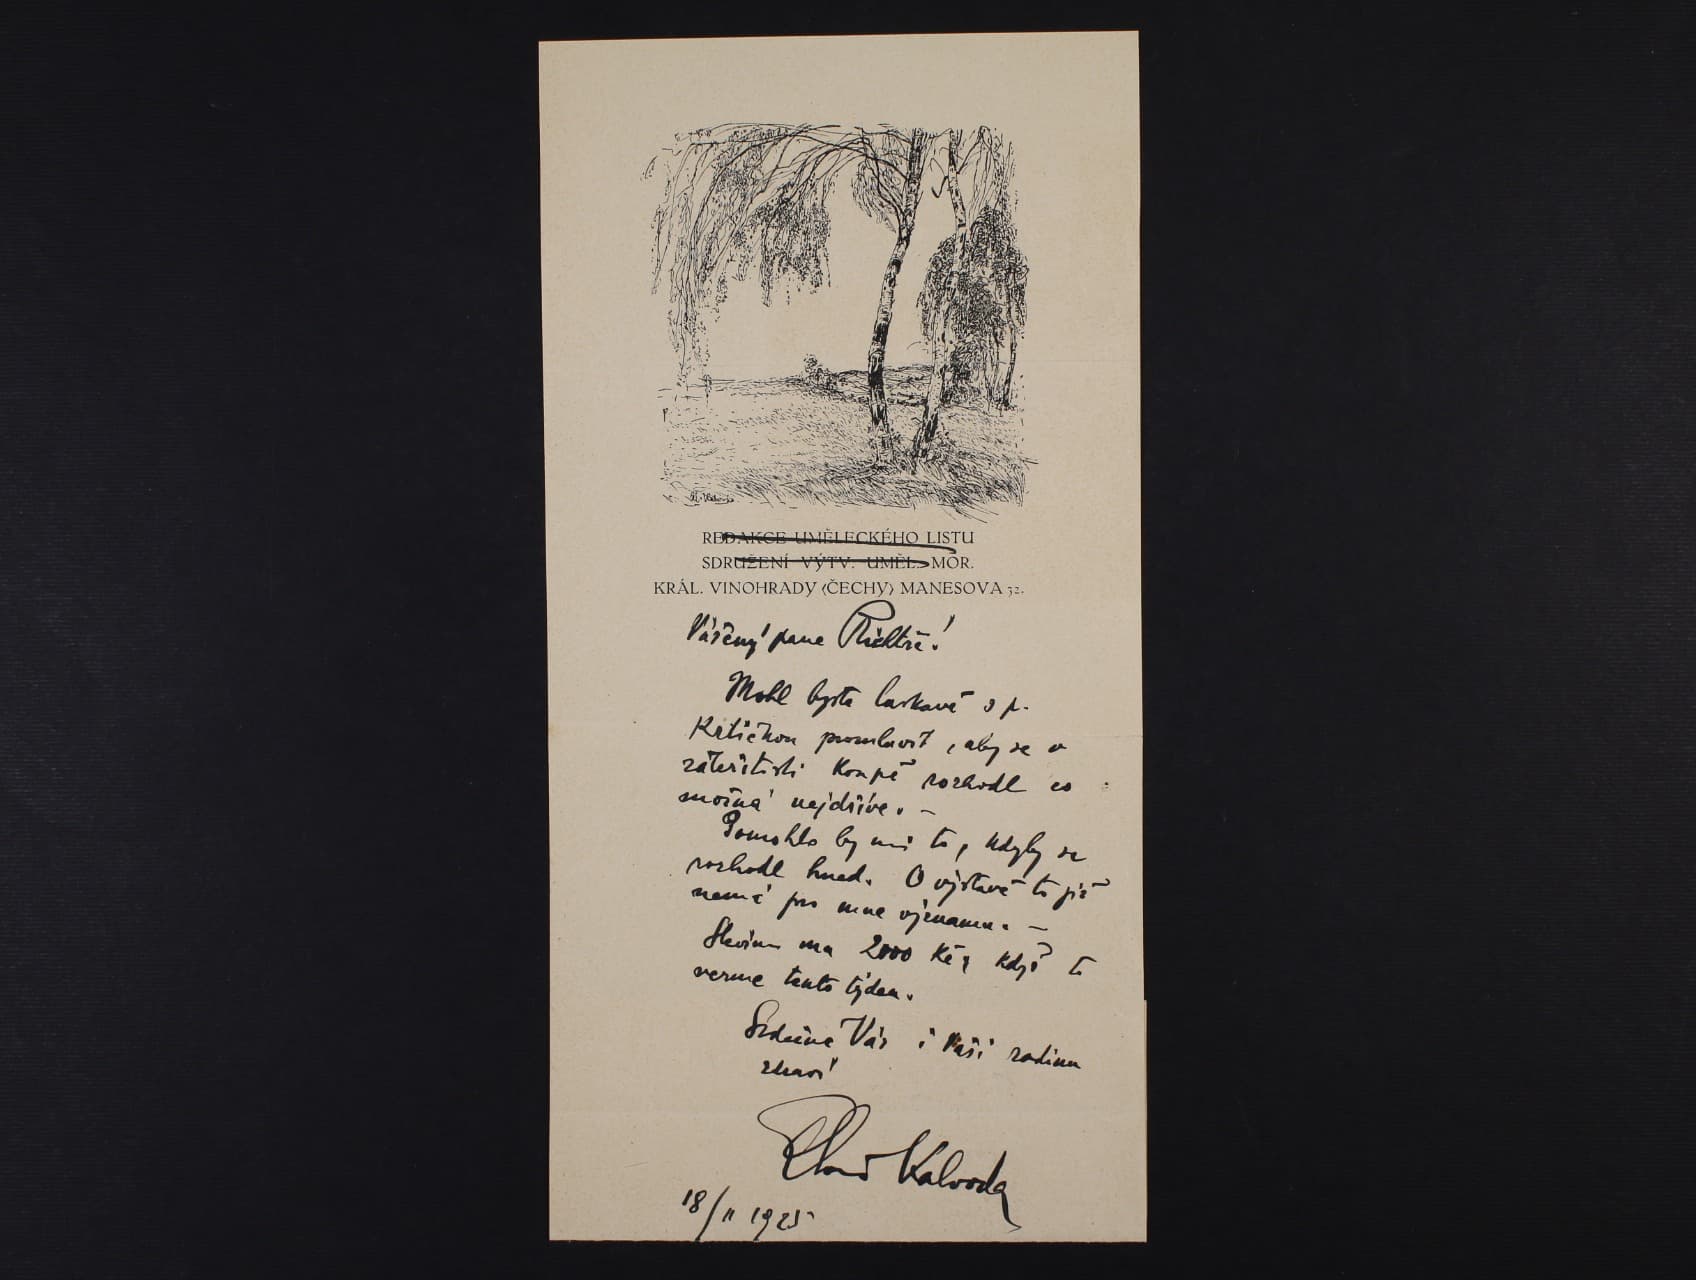 REDAKCE UMĚLECKÉHO LISTU
SDRUŽENÍ VÝTV. UMĚL. MOR.
KRÁL. VINOHRADY (ČECHY) MANESOVA 32.
Vážený pane Richtře!
Mohl byste laskavě s p.
Krtičkou promluvit, aby se v
záležitosti koupě rozhodl co
možná nejdříve. –
Pomohlo by mi to, kdyby se
rozhodl hned. O výstavě to již
nemá pro mne významu. –
Slevím na 2000 Kč, když to
vezme tento týden.
Srdečně Vás i Vaši rodinu
zdraví
Alois Kalvoda
18/II 1925